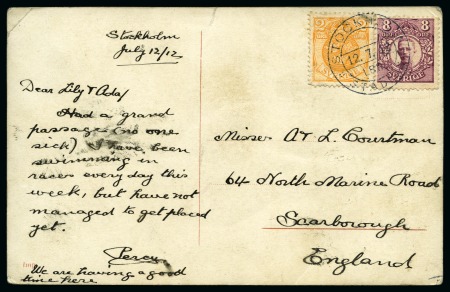 Stockholm
July 12/12
Dear Lily & Ada/
Had a grand
passage (no one
sick) I have been
swimming in
races every day this
week, but have not
managed to get placed
yet.
Percy
We are having a good
time here
Misses A & L. Courtman
64 North Marine Road
Scarborough
England
2
8
STOCKHOLM
12.7.12
SVERIGE